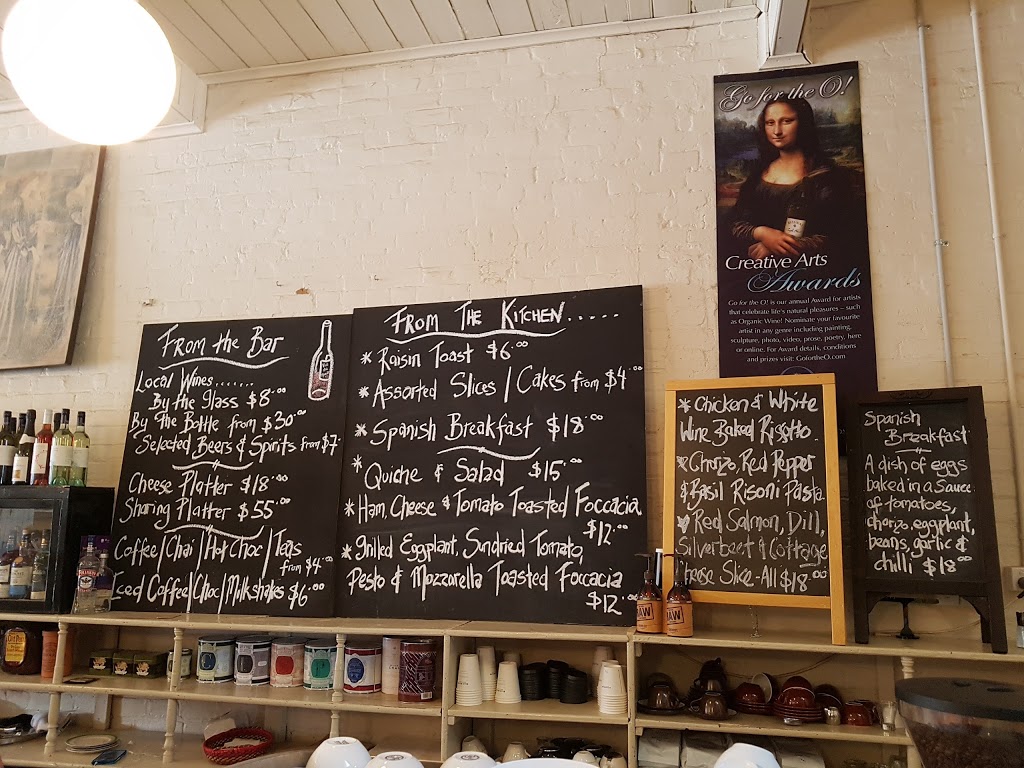 From the Bar
Local Wines.......
By the glass $8.00
By the Bottle from $30.00
Selected Beers & Spirits from $7.
Cheese Platter $18.00
Sharing Platter $55.00
Coffee / Chai / Hot Choc / Teas
from $4.00
Iced Coffee / Choc / Milkshakes $6.00
From The Kitchen......
* Raisin Toast $6.00
* Assorted Slices / Cakes from $4.00
* Spanish Breakfast $18.00
* Quiche & Salad $15.00
* Ham, Cheese & Tomato Toasted Foccacia
$12.00
* Grilled Eggplant, Sundried Tomato,
Pesto & Mozzarella Toasted Foccacia
$12.00
* Chicken & White
Wine Baked Risotto.
* Chorizo, Red Pepper
& Basil Risoni Pasta
* Red Salmon, Dill,
Silverbeet & Cottage
Cheese Slice - All $18.00
Spanish
Breakfast
A dish of eggs
baked in a Sauce
of tomatoes,
chorizo, eggplant,
beans, garlic &
chilli $18.00
Go for the O!
Creative Arts
Awards
Go for the O! is our annual Award for artists
that celebrate life's natural pleasures – such
as Organic Wine! Nominate your favourite
artist in any genre including painting,
sculpture, photo, video, prose, poetry, here
or online. For Award details, conditions
and prizes visit: GofortheO.com
RAW